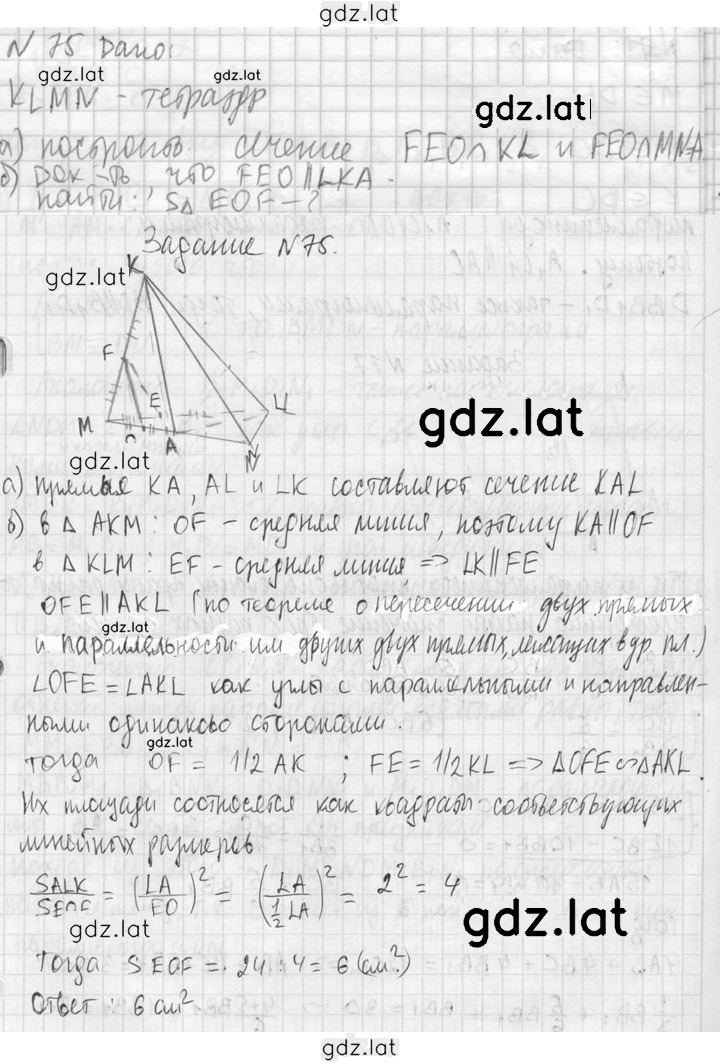 gdz.lat
N 75 Дано:
gdz.lat gdz.lat
KLMN - тетраэдр
gdz.lat
а) построить сечение FEO∩KL и FEO∩MNA
б) док-ть что FEO∥LKA
найти: S△ EOF - ?
gdz.lat
Задание N75.
gdz.lat
K
F
E
M O A Ц
N
gdz.lat
gdz.lat
а) прямая KA, AL и LK составляют сечение KAL
б) в △ AKM: OF - средняя линия, поэтому KA∥OF
в △ KLM: EF - средняя линия => LK∥FE
OFE∥AKL (по теореме о пересечении двух прямых
gdz.lat
и параллельности им других двух прямых, лежащих в др. пл.)
∠OFE = ∠AKL как углы с параллельными и направлен-
ными одинаково сторонами.
gdz.lat
тогда OF = 1/2 AK ; FE = 1/2 KL => △OFE ∽ △AKL.
Их площади соотносятся как квадраты соответствующих
линейных размеров
SALK/SEOF = (LA/EO)² = (LA/½LA)² = 2² = 4
gdz.lat gdz.lat
Тогда S EOF = 24 : 4 = 6 (см²)
Ответ: 6 см²
gdz.lat